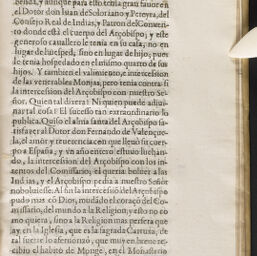 benda, y aunque para esto tenia gran fauor en
el Dotor don Iuan de Solorzano y Pereyra, del
Consejo Real de Indias, y Patron del Conuen-
to donde està el cuerpo del Arçobispo; y este
generoso cauallero le tenia en su casa, no en
lugar de huesped, sino en lugar de hijo; pues
le tenia hospedado en el mismo quarto de sus
hijos. Y tambien el valimiento, e intercession
de las venerables Monjas, pero tenia contra si
la intercession del Arçobispo con nuestro Se-
ñor. Quien tal dixera! Ni quien puede adiui-
nar tal cosa? El sucesso tan extraordinario lo
publica. Quiso el alma santa del Arçobispo sa-
tisfazer al Dotor don Fernando de Valençue-
la, el amor y reuerencia con que lleuò su cuer-
po a España, y vn año entero estuuo luchan-
do, la intercession del Arçobispo con los in-
tentos del Comissario, el queria boluer a las
Indias, y el Arçobispo pedia a nuestro Señor
no boluiesse. Al fin la intercession del Arçobispo
pudo mas cõ Dios, mudado el coraçõ del Co-
missario, del mundo a la Religion, y esto no co-
mo quiera, sino a la Religion mas perfeta que
ay en la Iglesia, que es la sagrada Cartuja, de
tal suerte lo aficionò, que muy en breue re-
cibio el habito de Monge, en el Monasterio